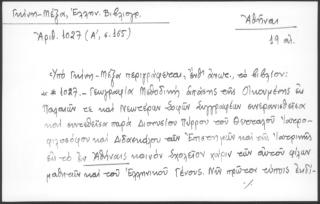 Γκίνη-Μέξα, Ἑλλην. Βιβλιογρ.
Ἀριθ. 1027 (Α', σ. 165)
Ἀθῆναι
19 αἰ.
Ὑπὸ Γκίνη-Μέξα περιγράφεται, ἔνθ' ἀνωτ., τὸ βιβλίον:
* * 1027.- Γεωγραφία Μεθοδικὴ ἁπάσης τῆς Οἰκουμένης ἐκ
Παλαιῶν τε καὶ Νεωτέρων Σοφῶν Συγγραφέων συνερανισθεῖσα
καὶ συντεθεῖσα παρὰ Διονυσίου Πύρρου τοῦ Θετταλοῦ Ἰατρο-
φιλοσόφου καὶ Διδασκάλου τῶν Ἐπιστημῶν καὶ τῆς Ἰατρικῆς
εἰς τὸ ἐν Ἀθήναις κοινὸν σχολεῖον χάριν τῶν αὐτοῦ φίλων
μαθητῶν καὶ τοῦ Ἑλληνικοῦ Γένους. Νῦν πρῶτον τύποις ἐκδί-